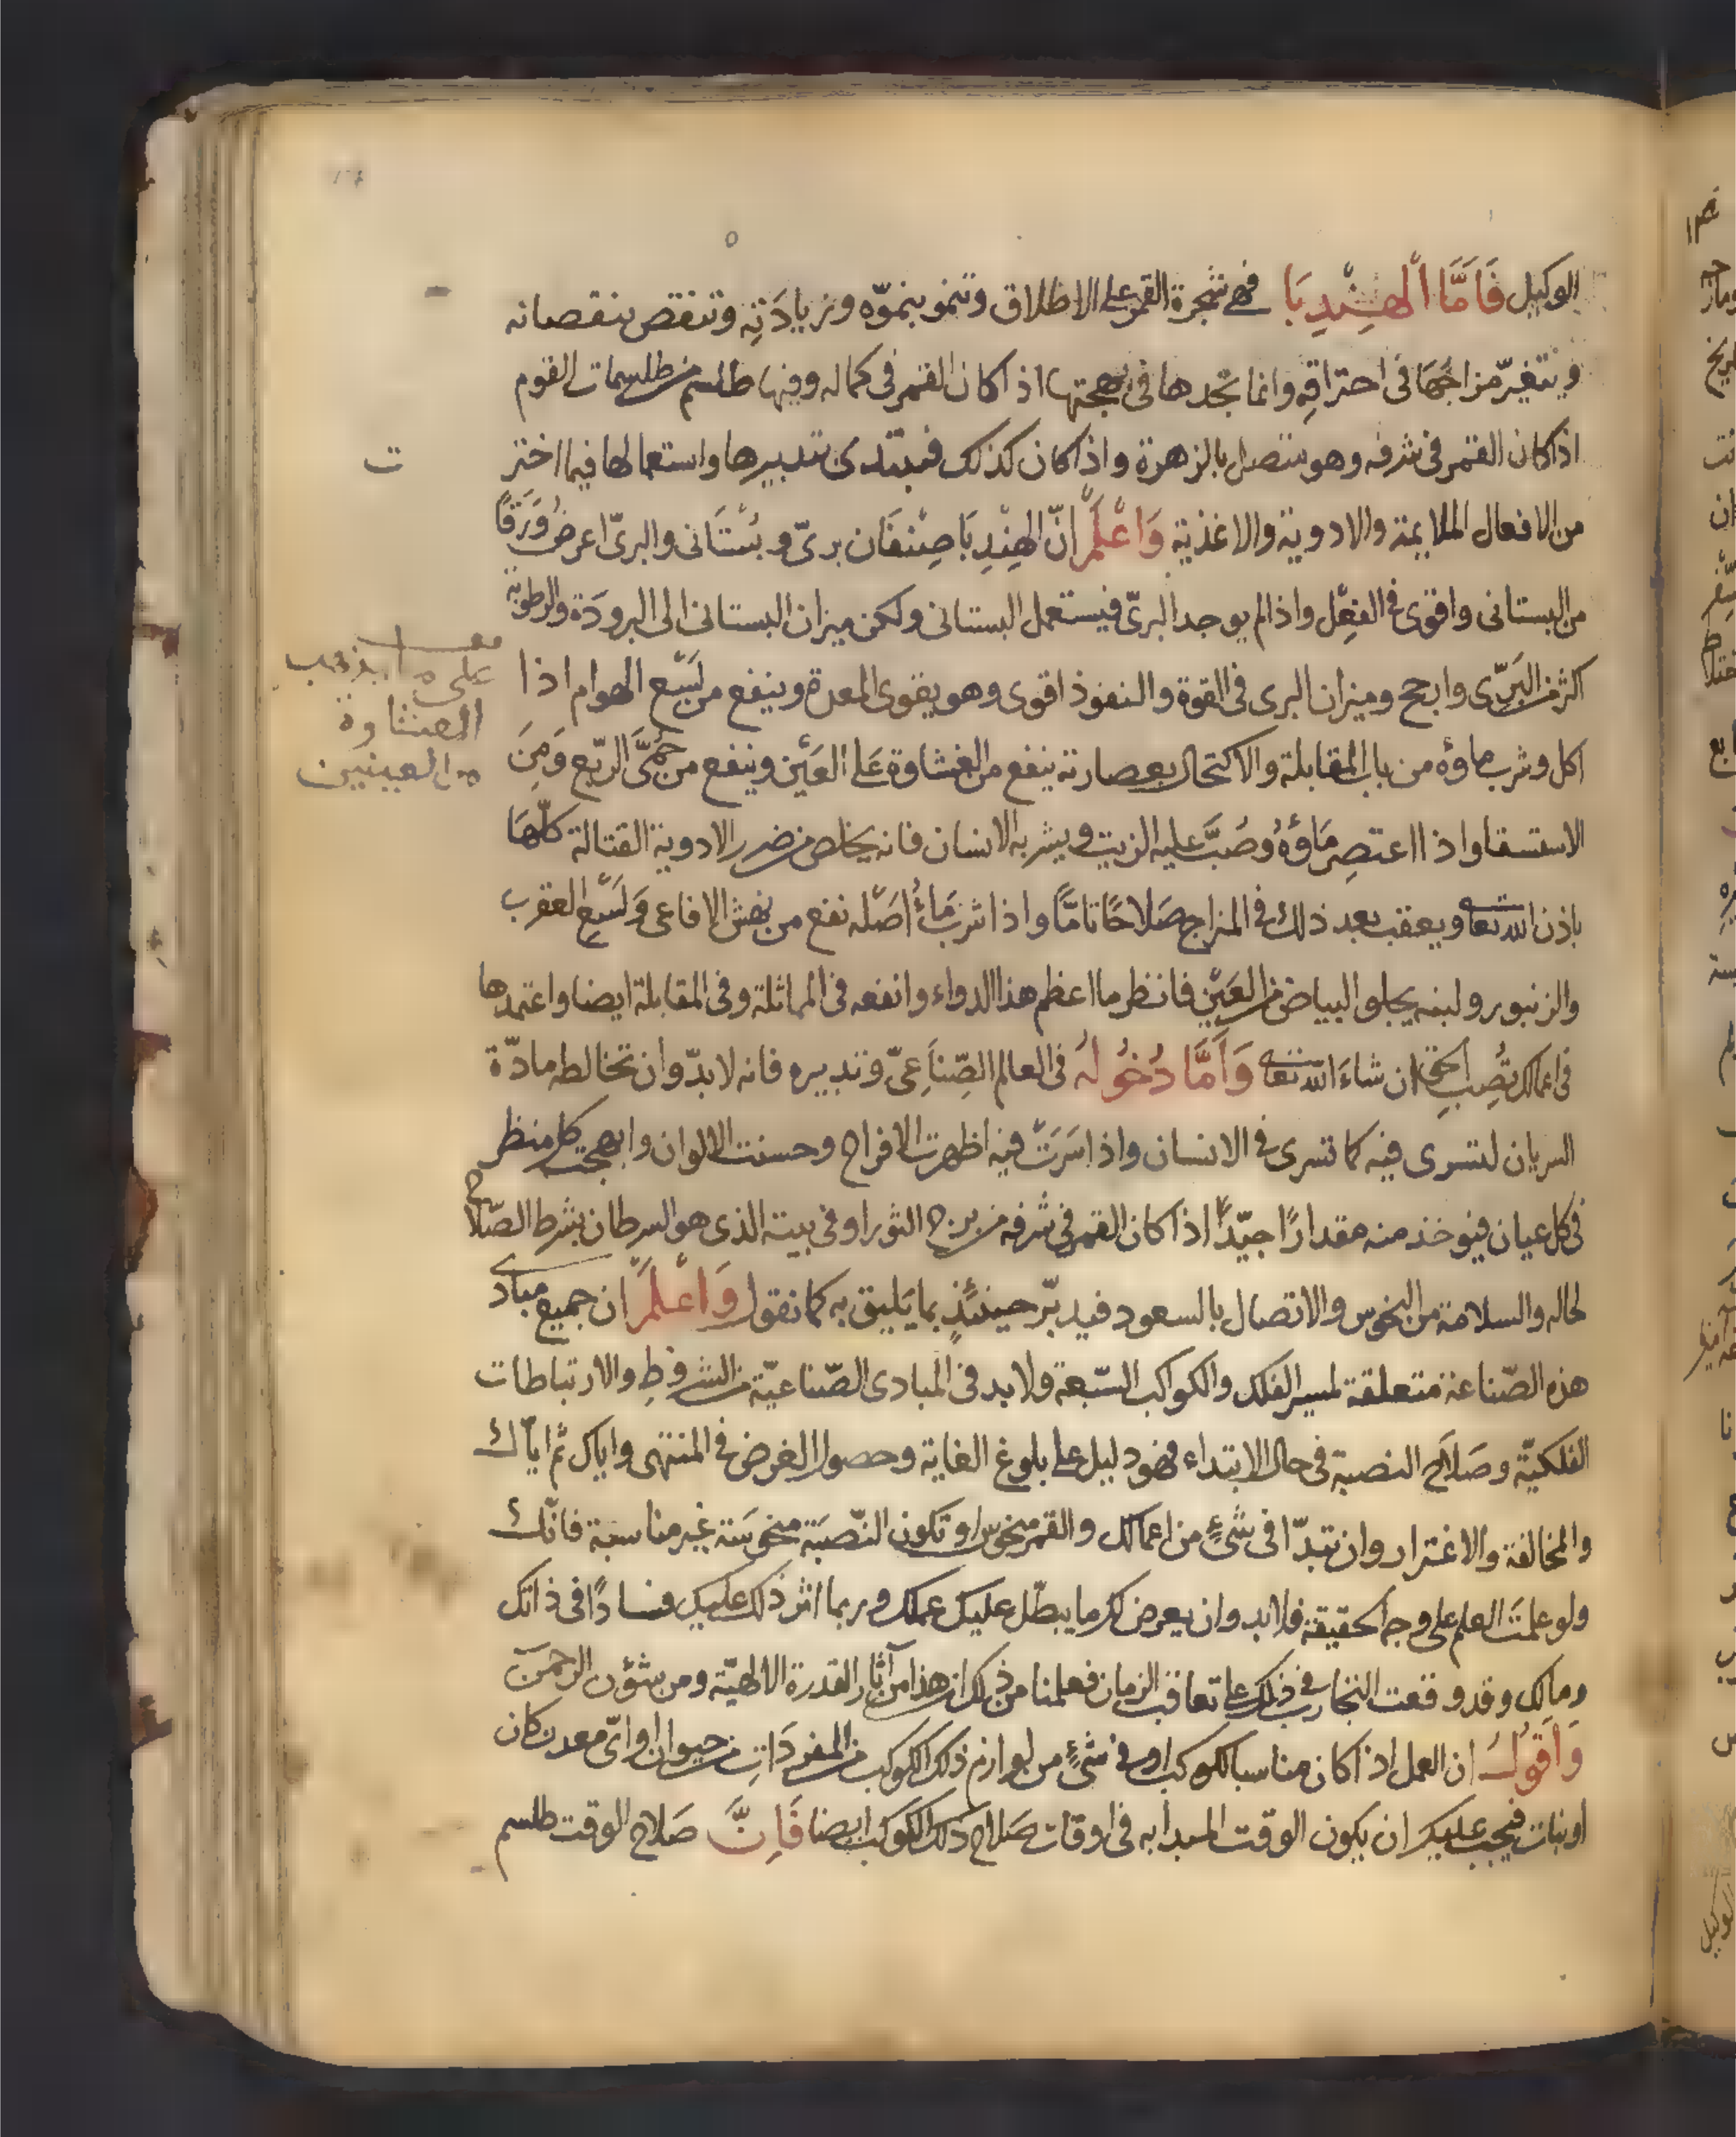 الوكيل فَاَمَّا الْهِنْدِبَا فهى شجرة القمر على الاطلاق وتنمو بنموّه وزيادَتِه وتنقص بنقصانه
ويتغيّر مزاجُهَا فى احتراقِه وانما تجدها فى بهجتها اذا كان القمر فى كماله وفيها طلسم من طلسمات القوم
اذا كان القمر فى شرفه وهو متصل بالزهرة واذا كان كذلك فيبتدى بتدبيرها واستعمالها فيما اختر
من الافعال الملايمة والادوية والاغذية وَاعْلَمْ انّ الهِنْدِبَا صِنْفَان برىّ وبُسْتَانى والبرىّ اعرضُ وَرَقًا
من البستانى واقوى فى الفِعْل واذا لم يوجد البرىّ فيستعمل البستانى ولكن ميزان البستانى الى البرودَة والرطوبة
اكثر من البَرّى وارجح وميزان البرى فى القوة والنفوذ اقوى وهو يقوى المعدة وينفع من لَسْع الهوام اذا
اكل وشرب ماؤه من باب المقابلة والاكتحال بعصارته ينفع من الغشاوة عَلى العَيْن وينفع من حُمَّى الرّبع وَمِنَ
الاستسقا واذا اعتصِر مَاؤُهُ وصُبَّ عليه الزيت ويشربه الانسان فانه يخلص من ضرر الادوية القتالة كلّهَا
باذن الله تعا ويعقب بعد ذلك فى المزاج صَلاحًا تامًّا واذا شرب مَاءُ اصَله نفع من نهش الافاعى وَلَسْع العقرب
والزنبور ولبنه يجلو البياض من العَيْن فانظر ما اعظم هذا الدواء وانفعه فى المماثلة وفى المقابلة ايضا واعتمدها
فى اعمالك تُصِب الحق ان شاءَ الله تعا وَاَمَّا دُخُولُهُ فى العالم الصِّنَاعِىّ وتدبيره فانه لا بدّ وان تخالطه مادّة
السريان لتسرى فيه كما تسرى فى الانسان واذا سَرَتْ فيه اظهرت الافراح وحسنت الالوان وابهجت كل منظر
فى كل عيان فيوخذ منه مقدارًا جيّدًا اذا كان القمر فى شرفه من برج الثور او فى بيته الذى هو السرطان بشرط الصّلاح
لحاله والسلامة من النحوس والاتصال بالسعود فيدبّر حينئذٍ بما يَليق به كما نقول وَاعْلَمْ ان جميع مبادى
هذه الصّناعة متعلقة لمسير الفلك والكواكب السّبعة ولا بد فى المبادى الصّناعيّة من الشروطِ والارتباطات
الفلكيّة وصَلَاح النصبة فى حال الابتداء فهو دليل على بلوغ الغاية وحصول الغرض فى المنتهى واياك ثم ايّاك
والمخالفة والاغترار وان تبدّا فى شىءٍ من اعمالك والقمر منحوس او تكون النّصبَة منحوسَة غير مناسبة فانّك
ولو علمتَ العلم على وجه الحقيقة فلا بد وان يعرض لك ما يبطّل عليك عملك وربما اثر ذلك عليك فسادًا فى ذاتك
ومالك وقد وقعت التجارب فى ذلك على تعاقب الزمان فعلمنا من ذلك ان هذا من آثار القدرة الالهيّة ومن شؤن الرحمن
وَاَقُولُ ان العمل اذا كان مناسبا لكوكب او فى شىءٍ من لوازم ذلك الكوكب من المفردَاتِ من حيوان او اىّ معدن كان
او نبات فيجب عليك ان يكون الوقت المبدأ به فى اوقات صَلاح ذلك الكوكب ايضا فَاِنَّ صَلاح الوقت طلسم
ت
على
الغشاوة
من العينين